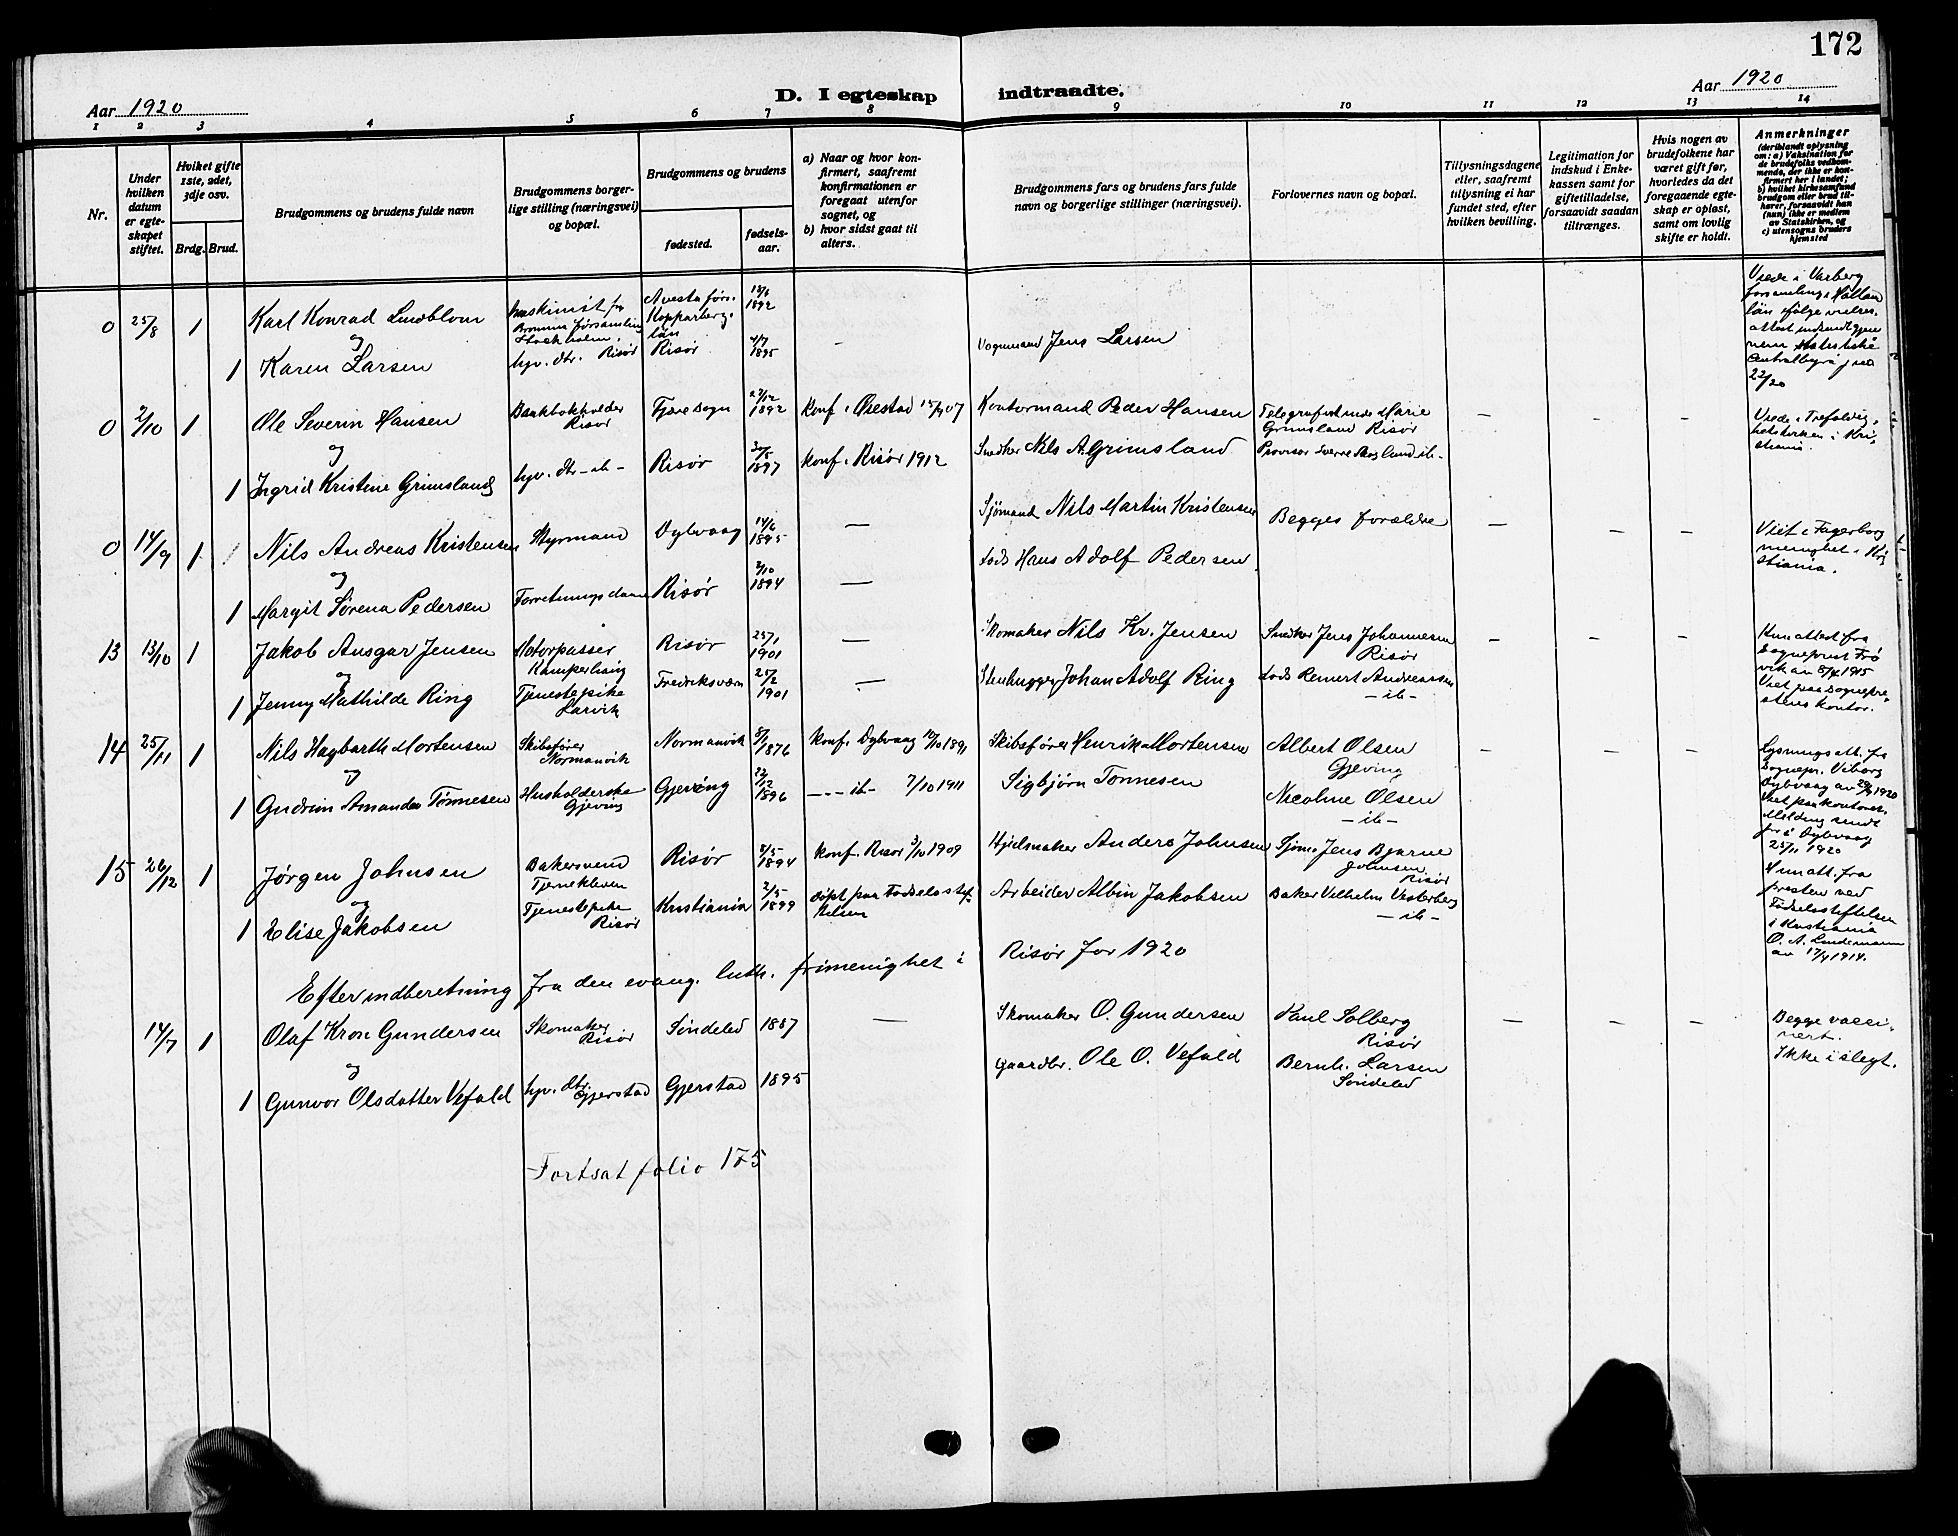 172
Aar 1920
D. I egteskap indtraadte.
Aar 1920
1 2 3 4 5 6 7 8 9 10 11 12 13 14
Nr.
Under hvilken datum er egteskapet stiftet.
Hviket gifte 1ste, 2det, 3dje osv.
Brdg. Brud.
Brudgommens og brudens fulde navn
Brudgommens borgerlige stilling (næringsvei) og bopæl.
Brudgommens og brudens
fødested.
fødselsaar.
a) Naar og hvor konfirmert, saafremt konfirmationen er foregaat utenfor sognet, og
b) hvor sidst gaat til alters.
Brudgommens fars og brudens fars fulde navn og borgerlige stillinger (næringsvei).
Forlovernes navn og bopæl.
Tillysningsdagene eller, saafremt tillysning ei har fundet sted, efter hvilken bevilling.
Legitimation for indskud i Enkekassen samt for giftetilladelse, forsaavidt saadan tiltrænges.
Hvis nogen av brudefolkene har været gift før, hvorledes da det foregaaende egteskap er opløst, samt om lovlig skifte er holdt.
Anmerkninger
(deriblandt oplysning om: a) Vaksination for de brudefolks vedkommende, der ikke er konfirmert her i landet;
b) hvilket kirkesamfund brudgom eller brud tilhører, forsaavidt han (hun) ikke er medlem av Statskirken, og
c) utensogns bruders hjemsted
0 25/8 1 Karl Konrad Lindblom Maskinist fra Bromma forsamling Stockholm. Avesta førs. Kopparberg. län 1892
Viede i Varberg forsamling i Halland län ifølge vielsesattest indsendt gjennem statistiske Centralbyrå 22/20
og
1 Karen Larsen hyv. dtr. Risør Risør 4/7 1895 – Vognmand Jens Larsen
0 2/10 1 Ole Severin Hansen Bankbokholder Risør Fjære sogn 27/12 1892 konf. i Øiestad 15/9 07 Kontormand Peder Hansen Telegrafistinde Marie Grimsland Risør – – –
Viede i Trefoldighetskirken i Kristiania.
og
1 Ingrid Kristine Grimsland hyv. dtr –ib– Risør 30/5 1897 konf. i Risør 1912 Snedker Nils A. Grimsland Provisor Sverre Skoglund ib–
0 14/9 1 Nils Andreas Kristensen Styrmand Dybvaag 14/6 1895 – Sjømand Nils Martin Kristensen Begges forældre – – –
Viet i Fagerborg menighet i Kristiania.
og
1 Margit Sørena Pedersen Forretningsdame Risør 2/10 1894 – Lods Hans Adolf Pedersen.
13 13/10 1 Jakob Ansgar Jensen Motorpasser Kamperhaug Risør 25/1 1901 – Skomaker Nils Kr. Jensen Snedker Jens Johannesen Risør – – –
Kun attest fra Sogneprest Frøvik av 8/4 1915 Viet paa sogneprestens kontor.
og
1 Jenny Mathilde Ring Tjenestepike Larvik Fredriksværn 25/2 1901 – Stenhugger Johan Adolf Ring Lods Reinert Andreassen –ib–
14 25/11 1 Nils Hagbarth Mortensen Skibsfører Normanvik Normanvik 8/1 1876 konf. Dybvaag 1891 Skibsfører Henrik Mortensen Albert Olsen Gjeving – – –
Lysningsatt. fra Sognepr. Viborg Dybvaag av 29/9 1920 Viet paa kontoret. Melding sendt fra i Dybvaag 25/11 1920
og
1 Gudrun Amanda Tønnesen Husholderske Gjeving Gjeving 22/12 1896 – – – ib– 7/10 1911 Sigbjørn Tønnesen Nicoline Olsen –ib–
15 26/12 1 Jørgen Johnsen Bakersvend Tjenekleven Risør 2/5 1894 konf. Risør 3/10 1909 Hjulmaker Anders Johnsen Sjøm. Jens Bjarne Johnsen Risør
Kun att. fra presten ved Fødselsstiftelsen i Kristiania O. A. Lindemann av 17/4 1914.
og
1 Elise Jakobsen Tjenestepike Risør Kristiania 2/5 1899 døpt paa Fødselsstiftelsen Arbeider Albin Jakobsen Baker Vilhelm Vesterberg –ib–
Efter indberetning fra den evang. luth. frimenighet i Risør for 1920
14/7 1 Olaf Kron Gundersen Skomaker Risør Søndeled 1887 – Skomaker O. Gundersen Paul Solberg Risør – – –
Begge vaccinert. Ikke i slegt.
og
1 Gunvor Olsdatter Vefald hyv. dtr. Gjerstad Gjerstad 1895 Gaardbr. Ole O. Vefald Bernh. Larsen Søndeled
Fortsat folio 175